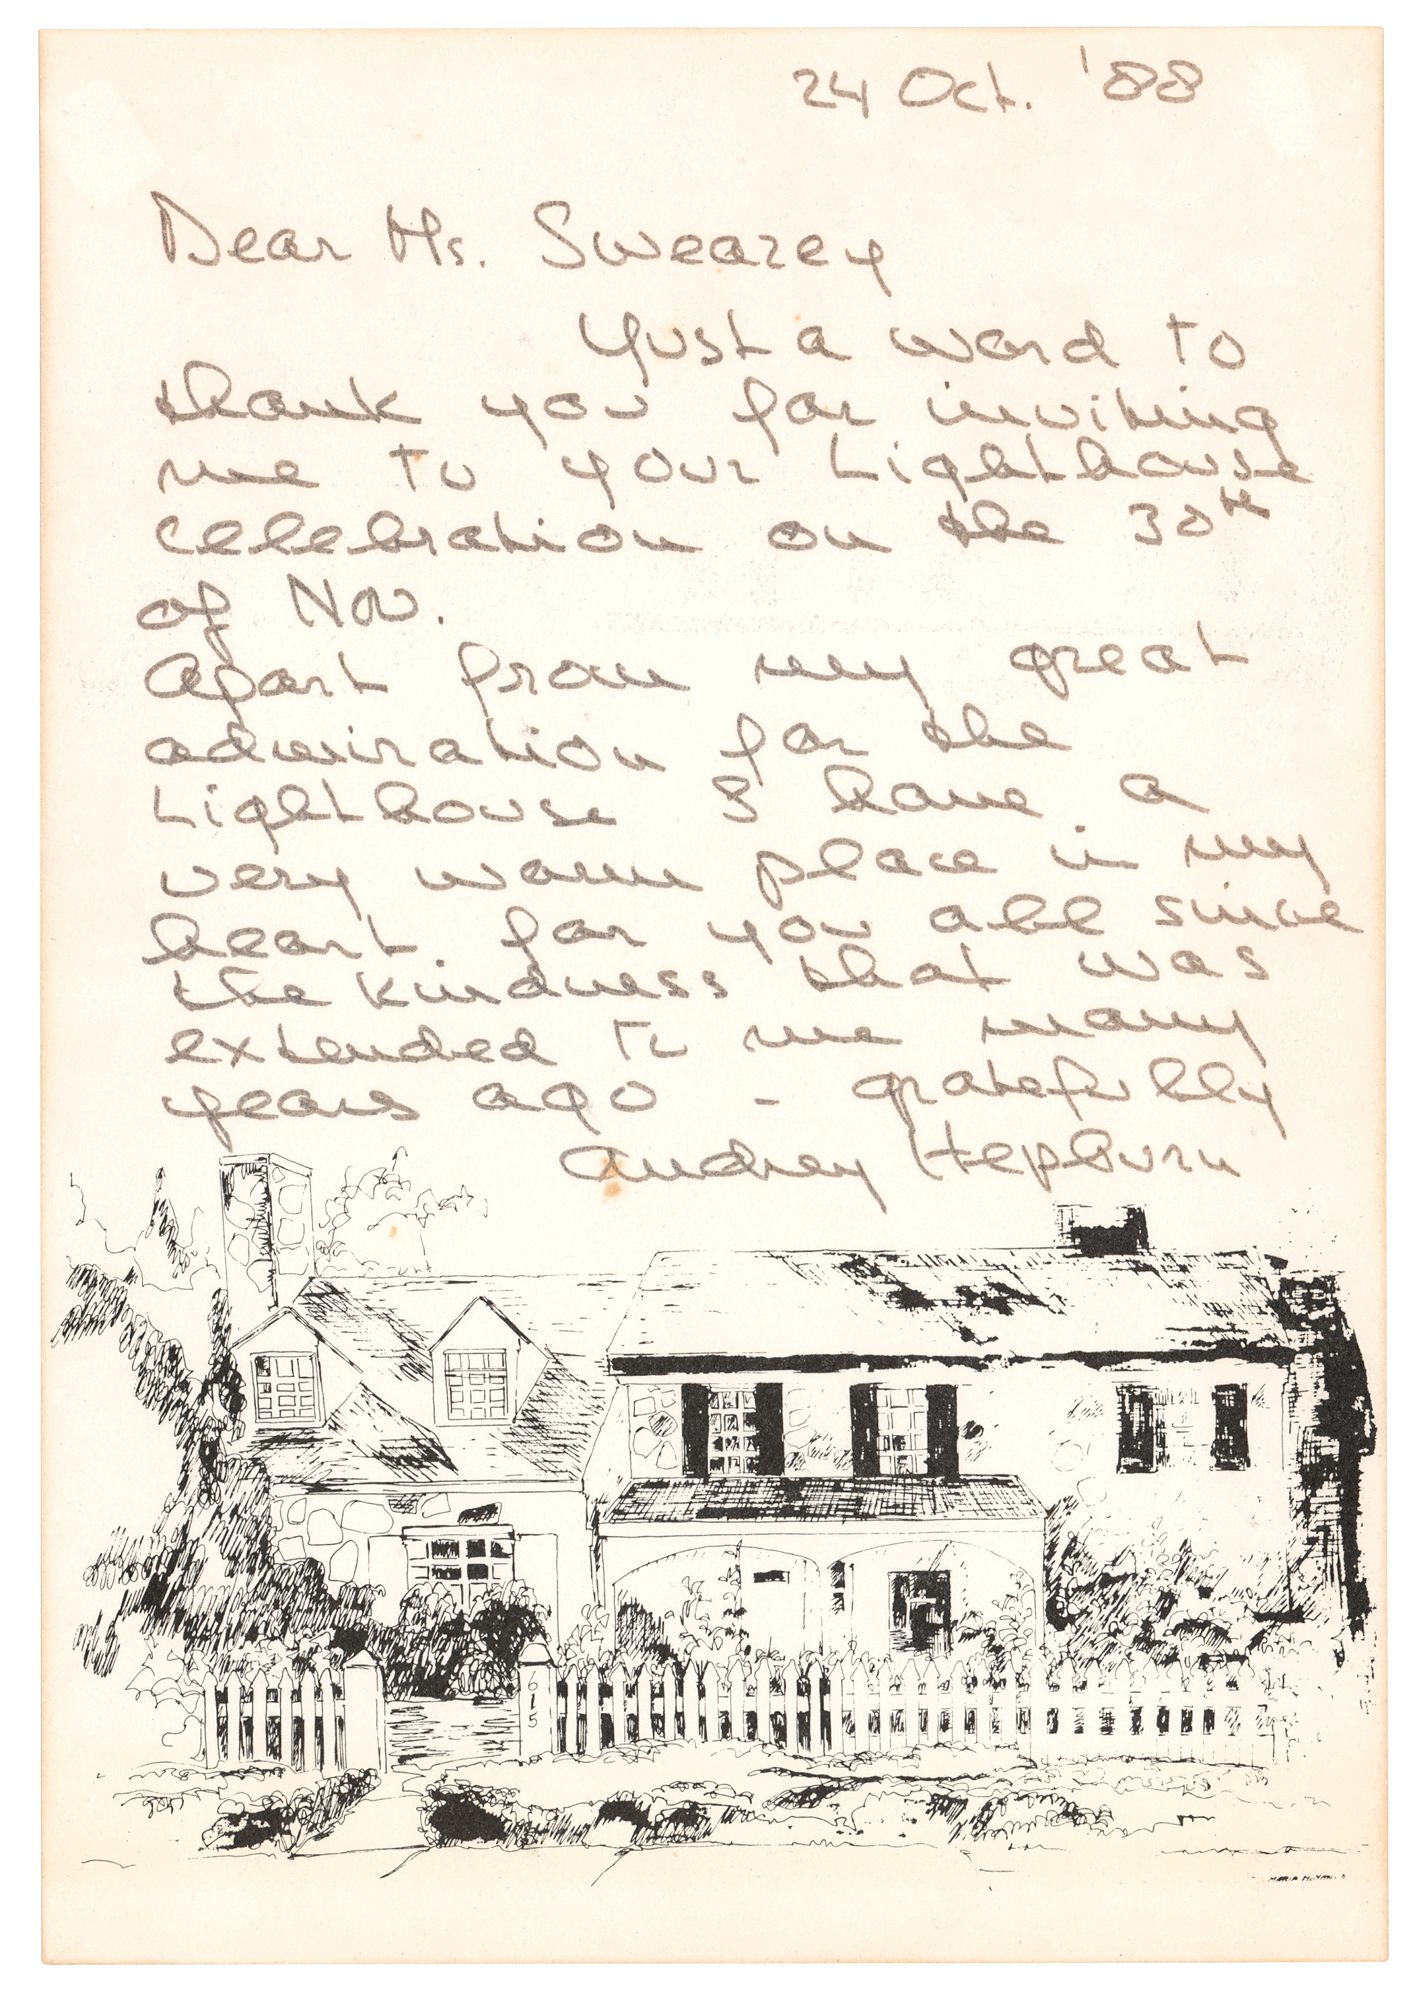 24 Oct. '88
Dear Ms. Swearezy
Just a word to
thank you for inviting
me to your Lighthouse
celebration on the 30th
of Nov.
Apart from my great
admiration for the
Lighthouse I have a
very warm place in my
heart for you all since
the kindness that was
extended to me many
years ago - gratefully
Audrey Hepburn
615